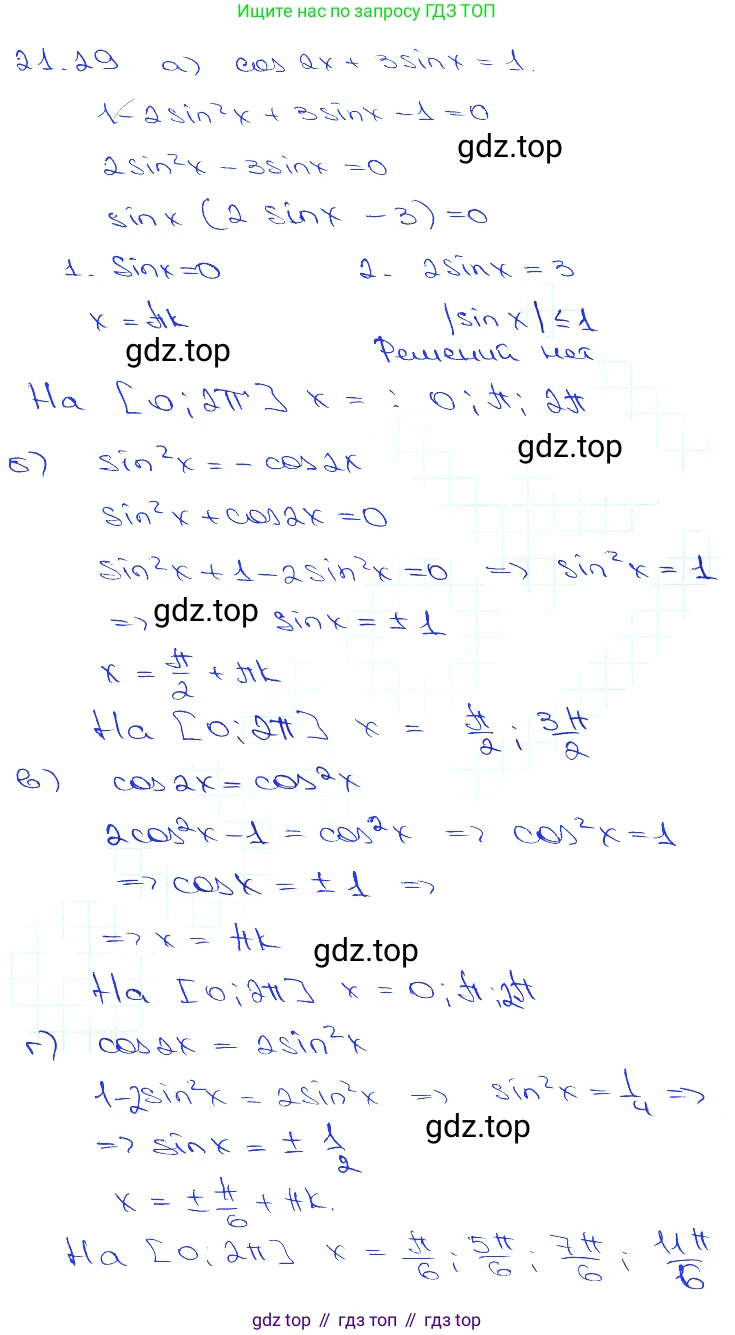 Ищите нас по запросу ГДЗ ТОП
21.29 а) cos 2x + 3sinx = 1.
1 - 2sin²x + 3sinx - 1 = 0
gdz.top
2sin²x - 3sinx = 0
sinx (2 sinx - 3) = 0
1. sinx = 0 2. 2sinx = 3
x = πk |sin x| ≤ 1
gdz.top Решений нет
На [0; 2π] x = : 0; π; 2π
gdz.top
б) sin²x = - cos2x
sin²x + cos2x = 0
sin²x + 1 - 2sin²x = 0 => sin²x = 1
=> gdz.top sinx = ± 1
x = π/2 + πk
На [0; 2π] x = π/2; 3π/2
в) cos2x = cos²x
2cos²x - 1 = cos²x => cos²x = 1
=> cosx = ± 1 =>
=> x = πk gdz.top
На [0; 2π] x = 0; π; 2π
г) cos2x = 2sin²x
1 - 2sin²x = 2sin²x => sin²x = 1/4 =>
=> sinx = ± 1/2 gdz.top
x = ± π/6 + πk.
На [0; 2π] x = π/6; 5π/6; 7π/6; 11π/6
gdz top // гдз топ // gdz top